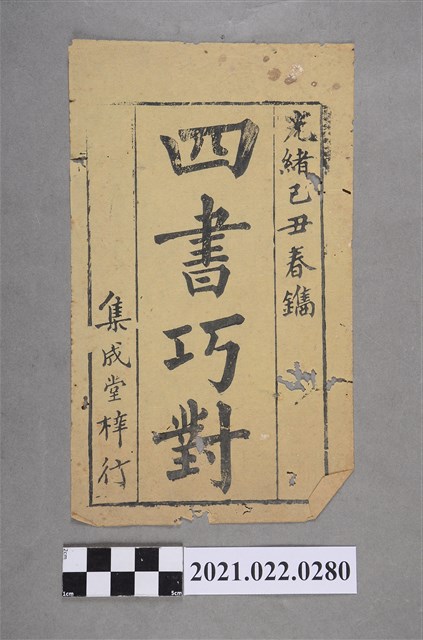 光緒己丑春鐫
四書巧對
集成堂梓行
2cm
1cm
5cm
2021.022.0280